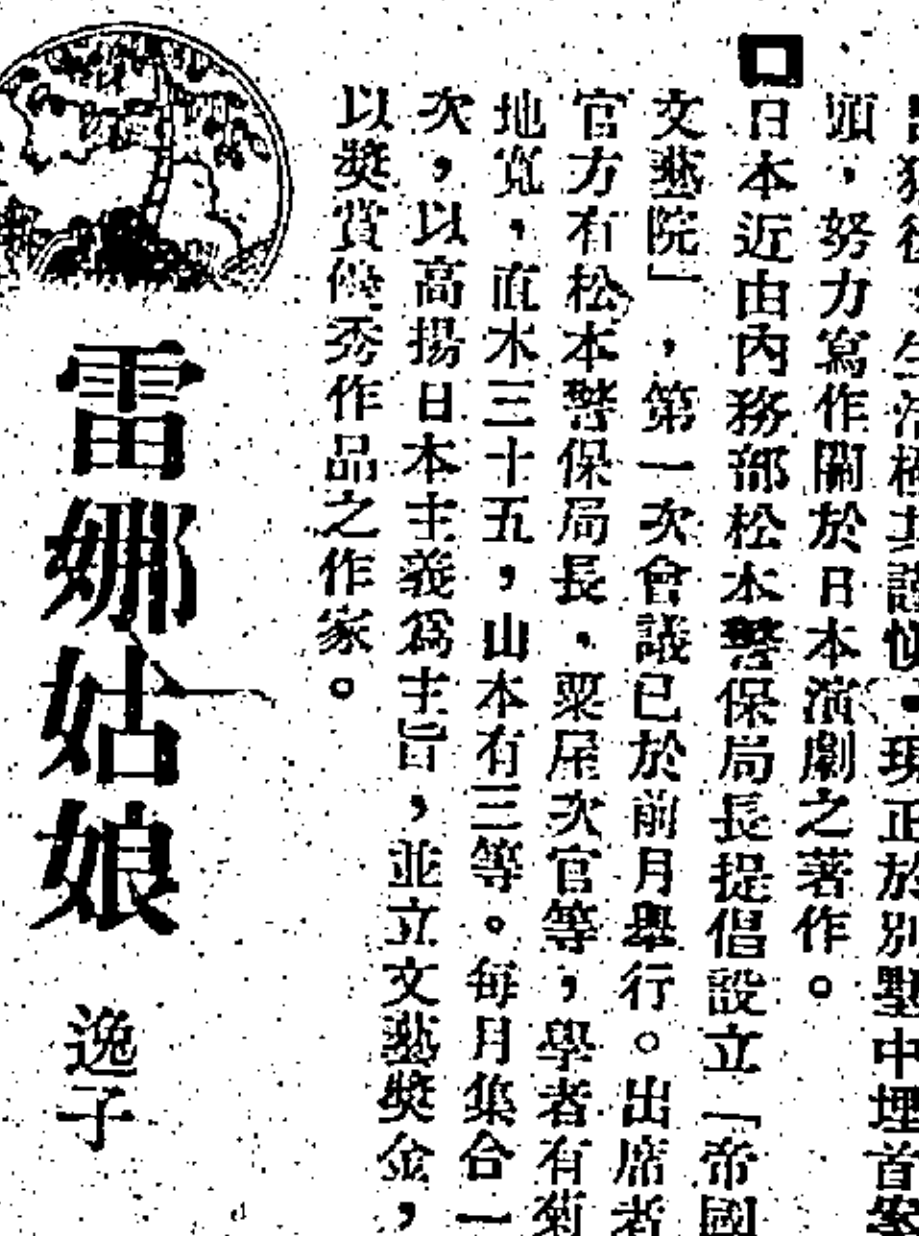 後，生活極其謹慎。現正於別墅中埋首案
頭，努力寫作關於日本演劇之著作。
日本近由內務部松本警保局長提倡設立「帝國
文藝院」，第一次會議已於前月舉行。出席者
官方有松本警保局長，粟屋次官等，學者有菊
地寬，直木三十五，山本有三等。每月集合一
次，以高揚日本主義爲主旨，並立文藝獎金，
以獎賞優秀作品之作家。
雷娜姑娘
逸子